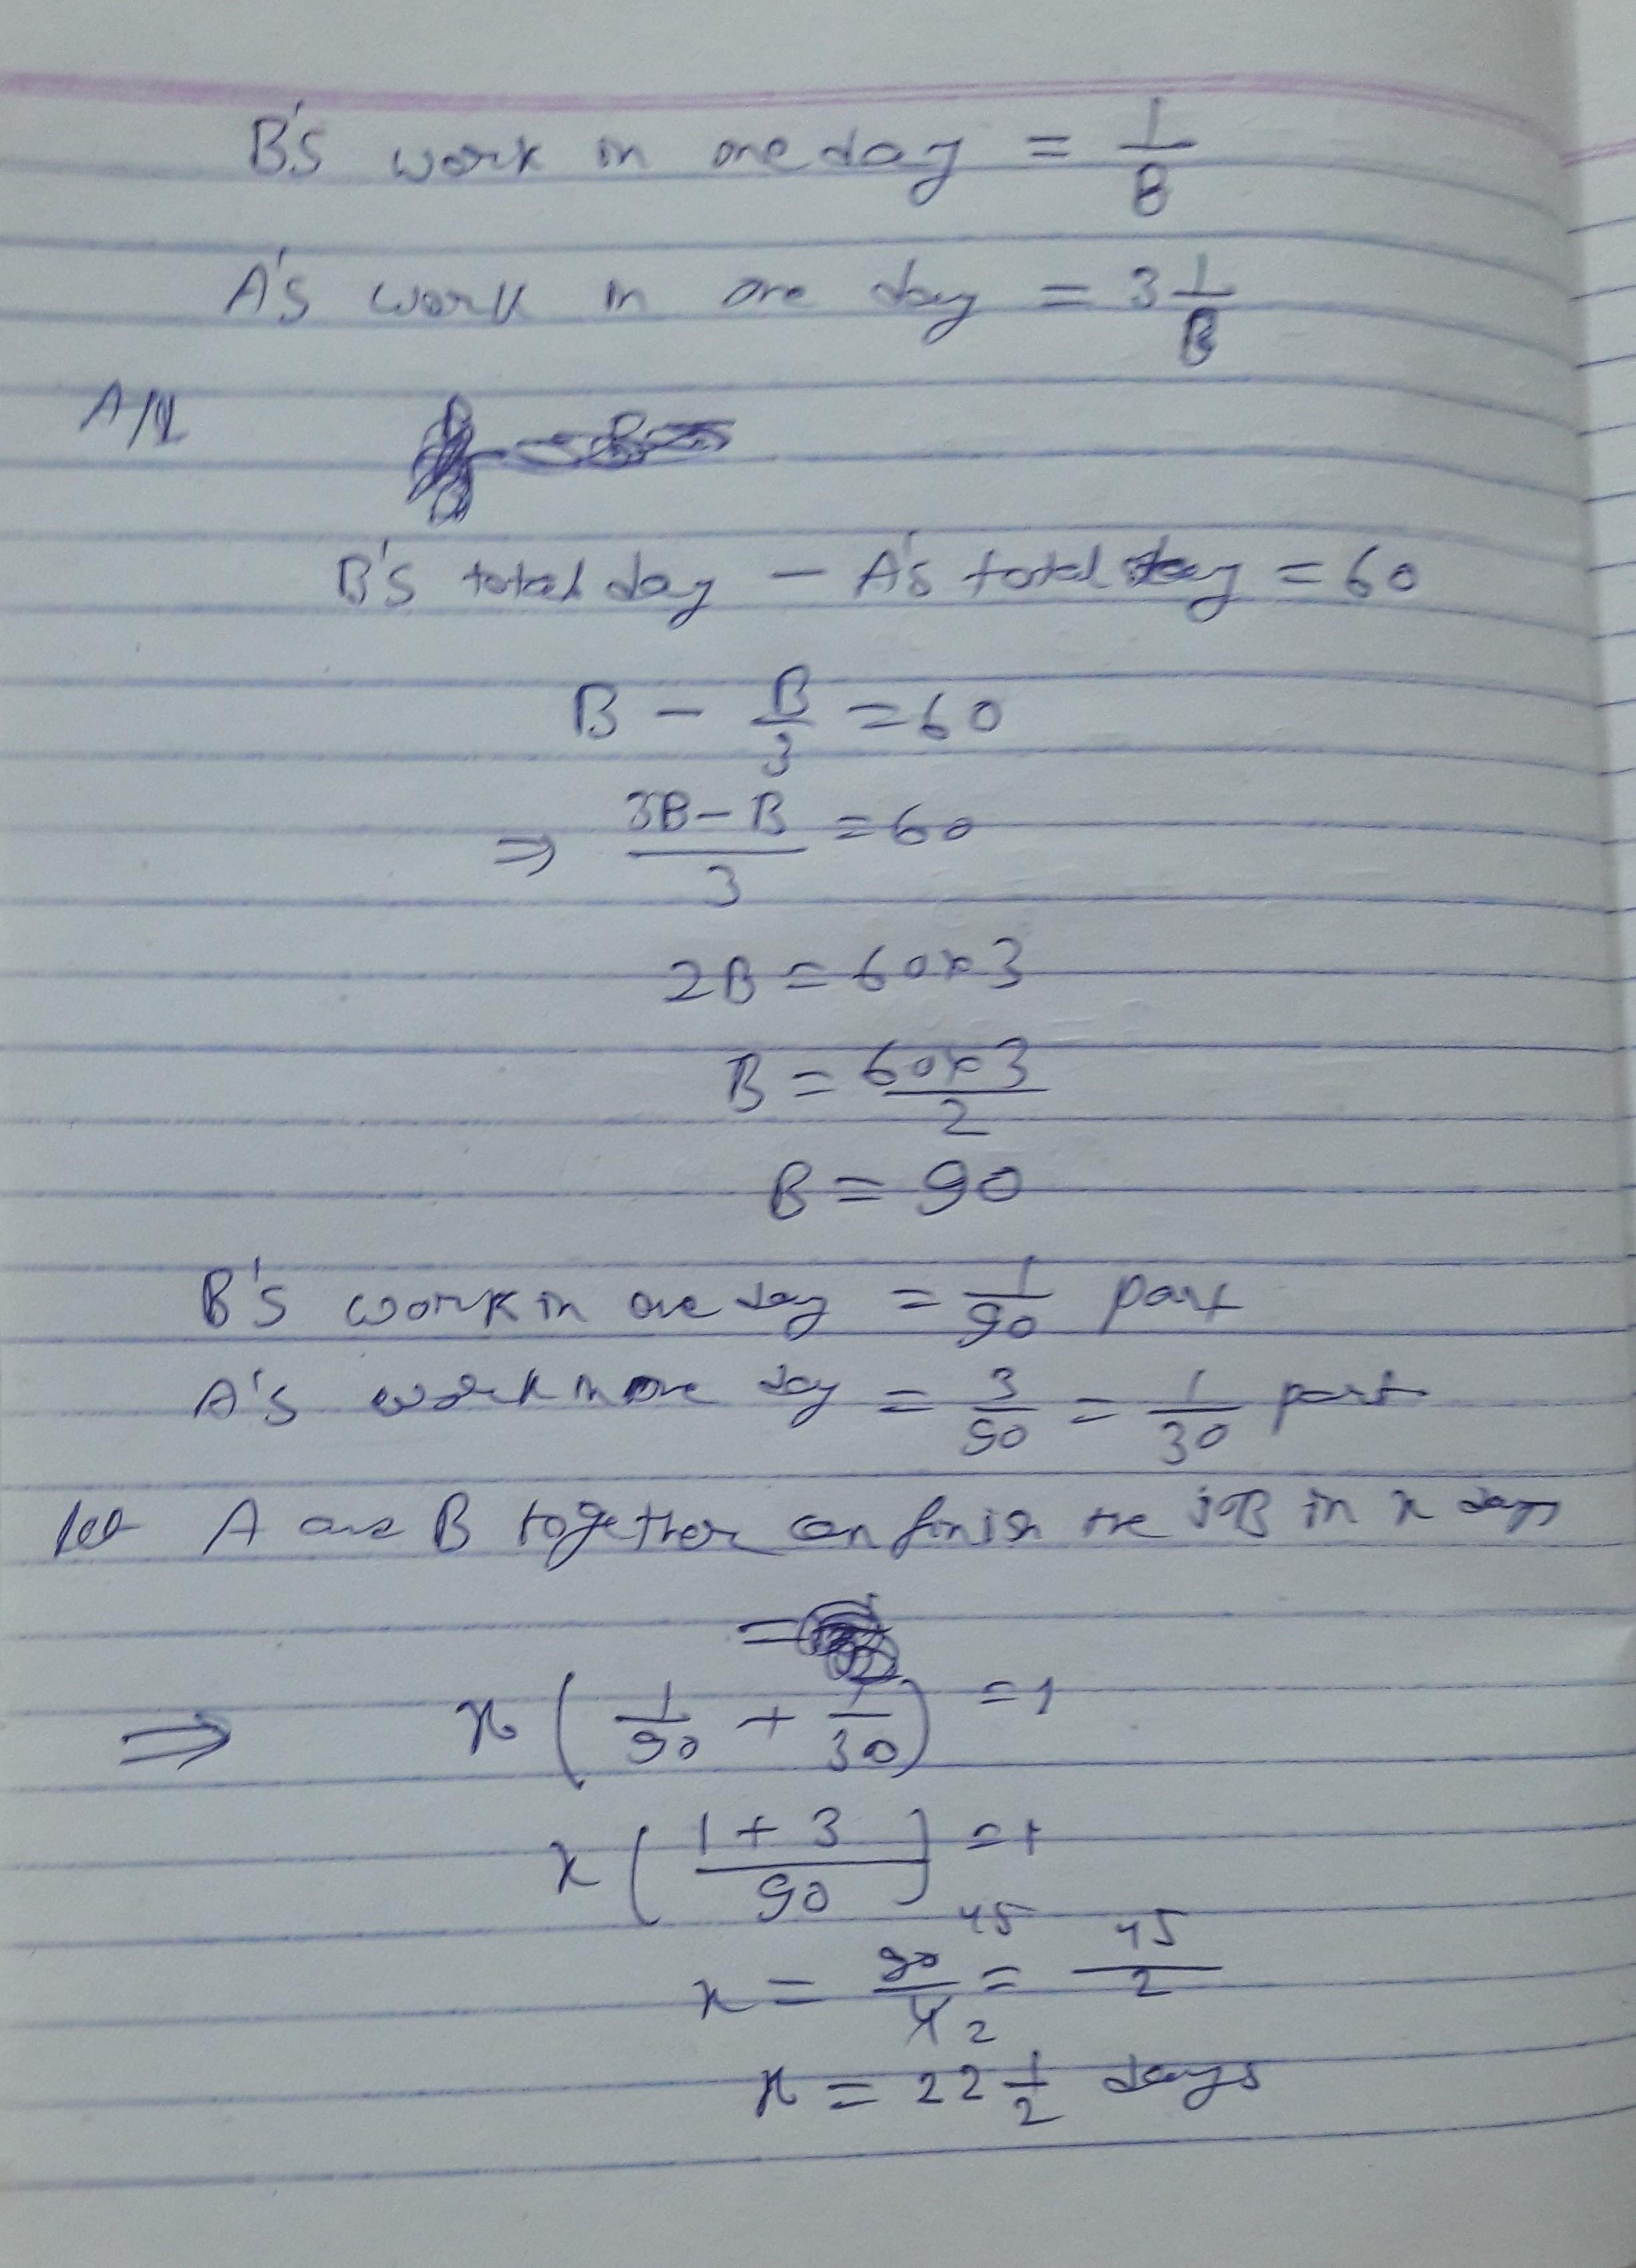 B's work in one day = 1/B
A's work in one day = 3 1/B
A/Q
B's total day - A's total day = 60
B - B/3 = 60
⇒ (3B - B)/3 = 60
2B = 60×3
B = (60×3)/2
B = 90
B's work in one day = 1/90 part
A's work in one day = 3/90 = 1/30 part
let A and B together can finish the job in x days
=
⇒ x (1/90 + 1/30) = 1
x ((1+3)/90) = 1
x = 90/4 45 2 = 45/2
x = 22 1/2 days